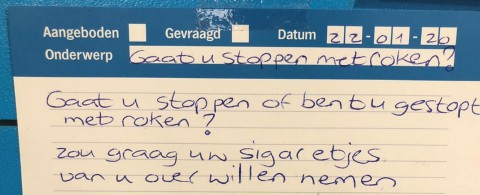 Aangeboden Gevraagd Datum 22-01-20
Onderwerp Gaat u stoppen met roken?
Gaat u stoppen of bent u gestopt
met roken?
zou graag uw sigaretjes
van u over willen nemen